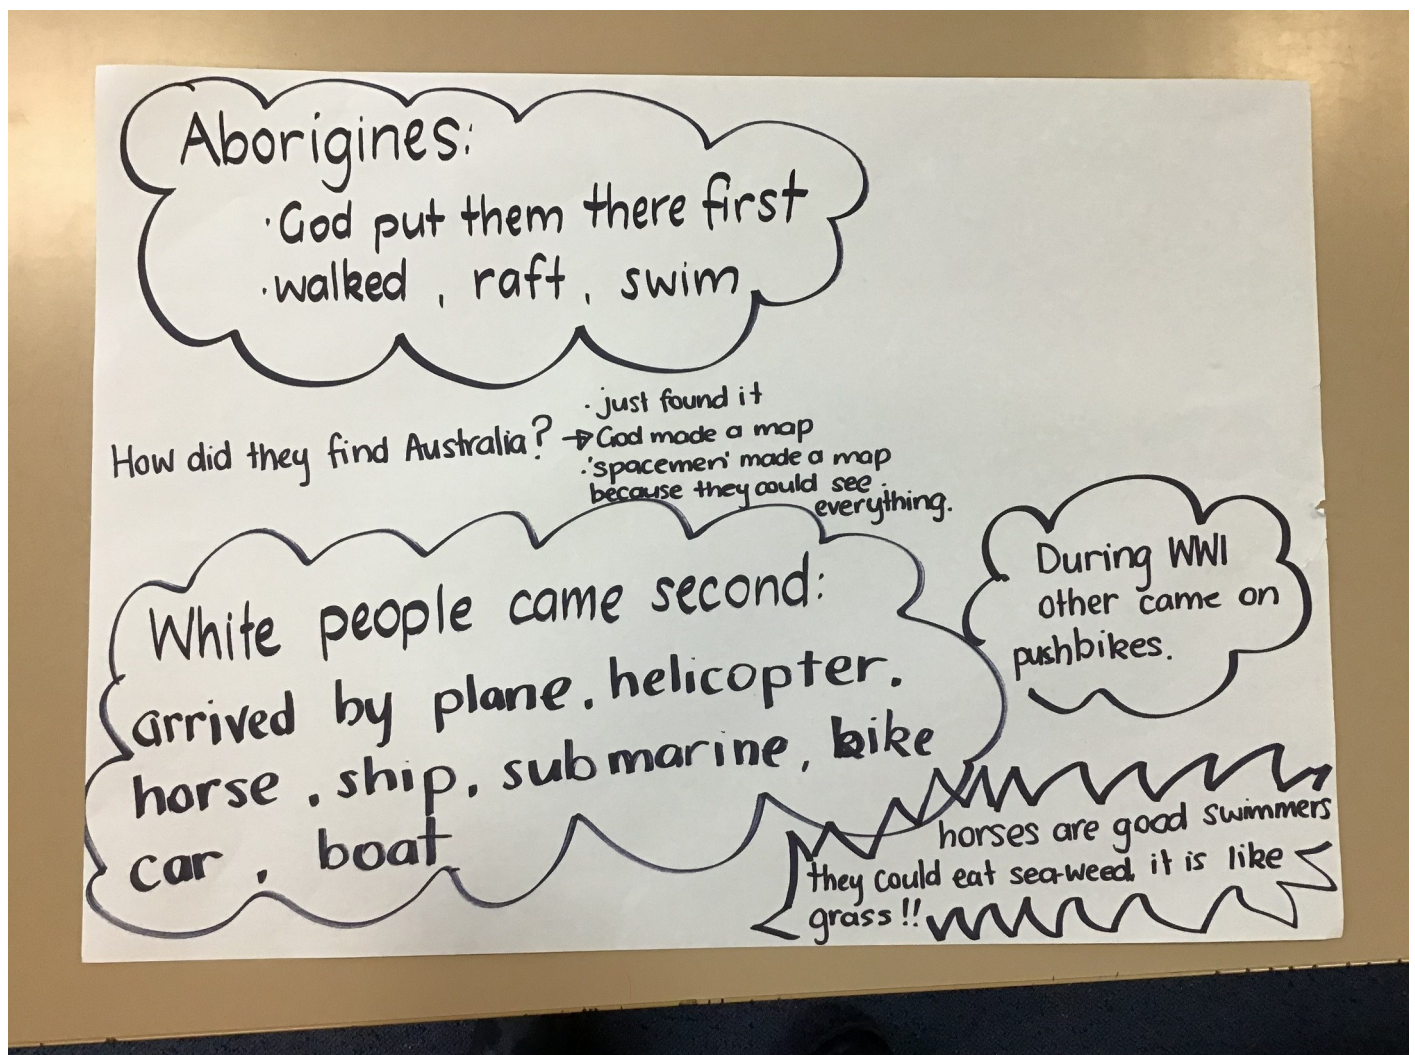 Aborigines:
·God put them there first
·walked , raft , swim
How did they find Australia?
· just found it
→ God made a map
·'spacemen' made a map
because they could see
everything.
White people came second:
arrived by plane, helicopter,
horse, ship, submarine, bike
car, boat
During WWI
other came on
pushbikes.
horses are good swimmers
they could eat sea-weed it is like
grass!!